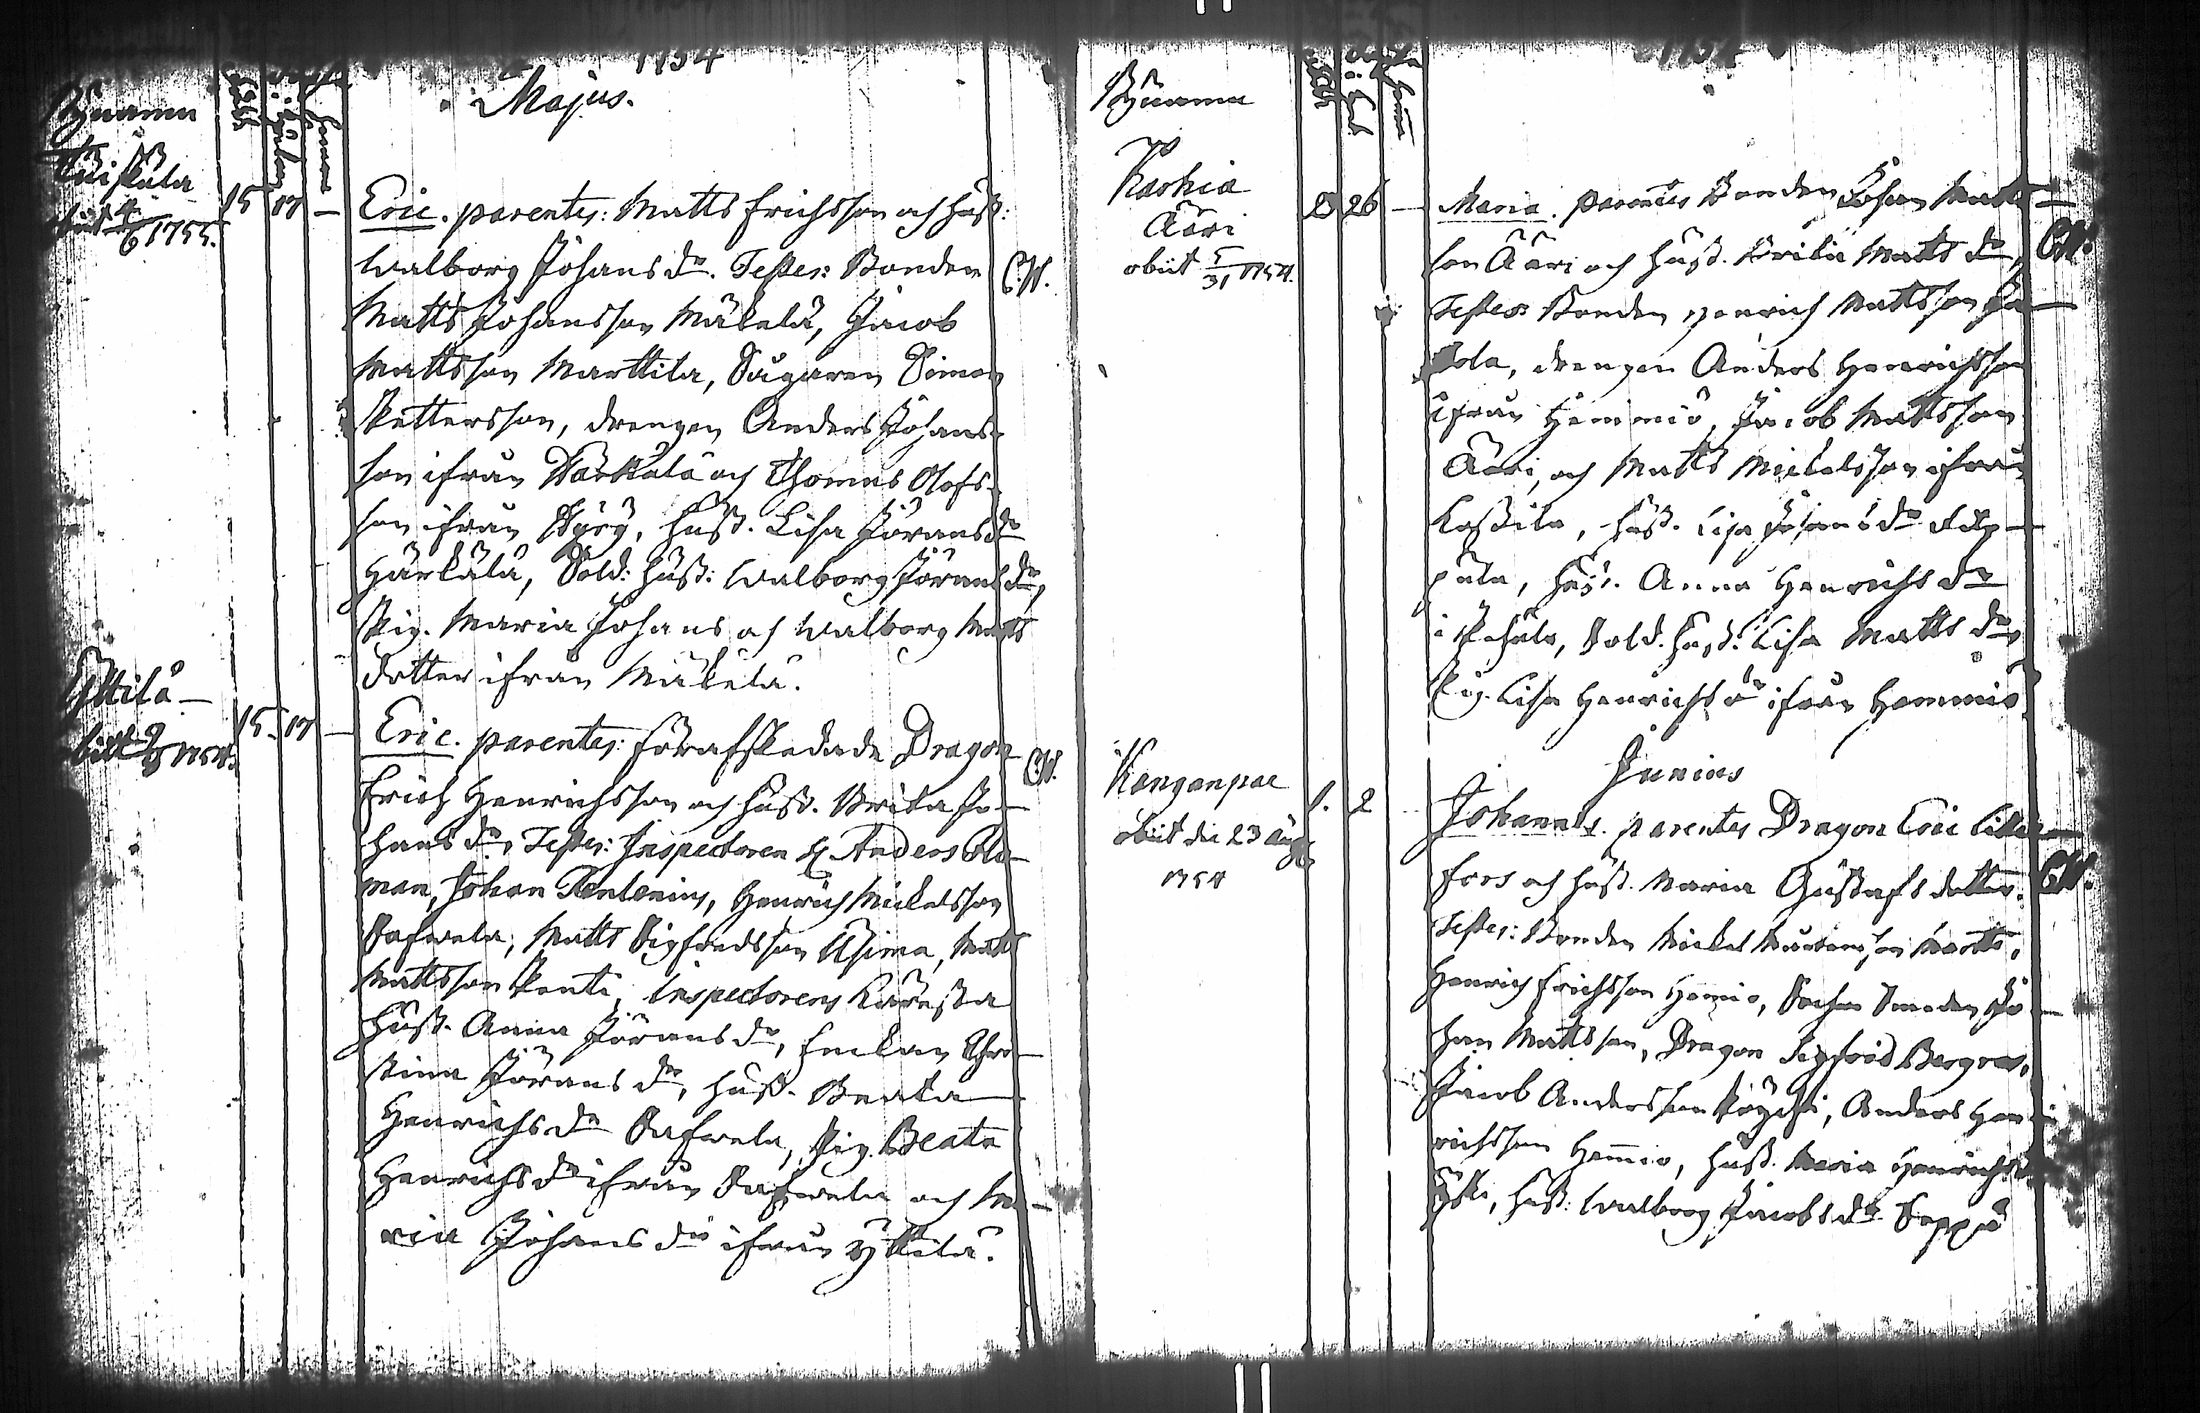 1754
Majus.
Bynamn
Tuiskula
obiit 4/6 1755.
15 17 —
Eric. parentes: Matts Erichsson och hust:
Walborg Johans dr. Testes: Bonden
C.W.
Matts Johansson Mäkelä, Jacob
Mattsson Marttila, Sågaren Simon
Pettersson, drengen Anders Johans-
son ifrån Härkälä och Thomas Olofs-
son ifrån, hust. Lisa Jörans dr
Härkälä, Sold: hust: Walborg Jörans dr,
Pig. Maria Johans och Walborg Matts
dotter ifrån Mäkelä.
Yttilä —
1754.
15. 17 —
Eric. parentes: förafskedade Dragon
C.W.
Erich Henrichsson och hust. Brita Jo-
hans dr, Testes: Inspectoren H Anders
man, Johan Tenlenius, Henrich Mickelsson
Safwela, Matts Sigfredsson Uсima, Matts
Mattsson Penti, Inspectorens Käresta
hust. Anna Jörans dr, Enkan Chri-
stina Jörans dr, hust. Beata
Henrichs dr Safwela, Pig. Beata
Henrichs dr ifrån Safwela och Ma-
ria Johans dr ifrån Yttilä.
1754
Bynamn
Karhia
Ääri
obiit 5/31 1754.
25 26 —
Maria. parentes Bonden Johan Matts-
son Ääri och hust. Brita Matts dr,
C.W.
Testes: Bonden Henrich Mattsson
drengen Anders Henrichsson
ifrån Hemmiö, Jacob Mattsson
Ääri, och Matts Mickelsson ifrån
Kassila, hust. Lisa Johans dr
hust. Anna Henrichs dr
Sold. hust. Lisa Matts dr,
Pig. Lisa Henrichs dr ifrån Hemmiö
Junius
Kanganpae
obiit die 23 Aug
1754
1. 2
Johannes. parentes Dragon Eric Lille-
fors och hust. Maria Gustafs dotter.
C.W.
Testes: Bonden Mickel Martti,
Henrich Erichsson Hemio, Sochne Smeden Jo-
han Mattsson, Dragon Sigfrid Bergroos,
Jacob Andersson, Anders Hen-
richsson Hemio, hust. Maria Henrichs
hust: Walborg Jacobs dr Seppä